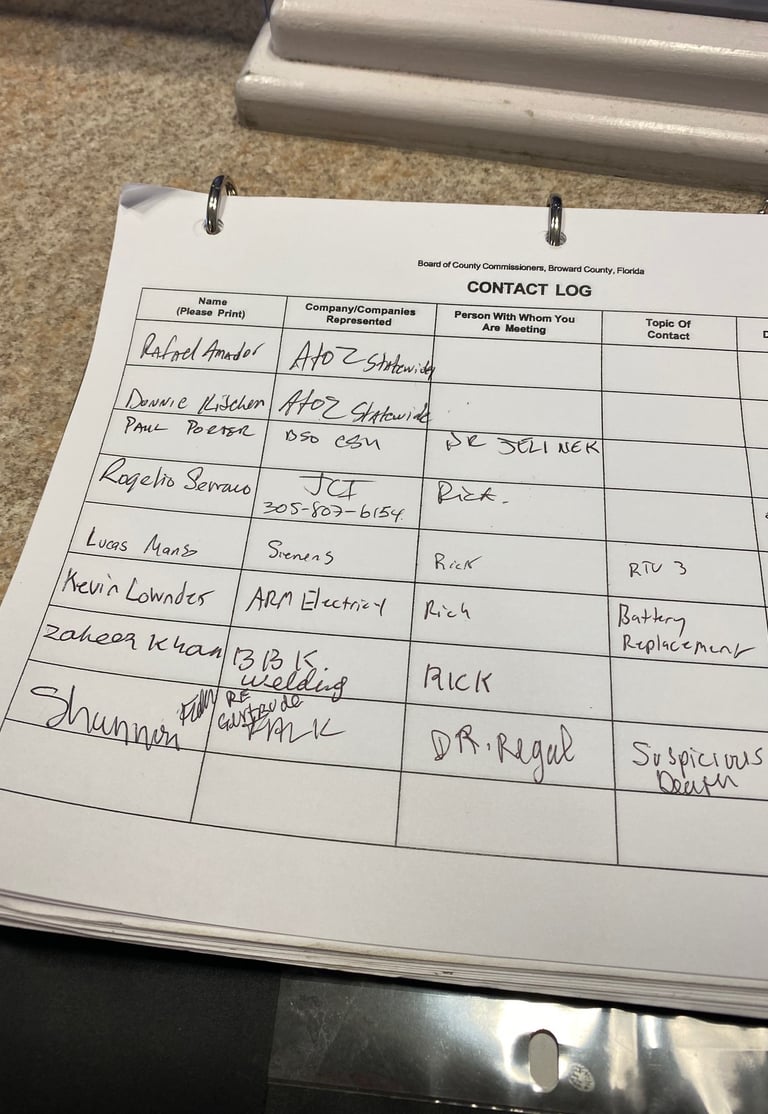 Board of County Commissioners, Broward County, Florida
CONTACT LOG
Name
(Please Print)
Company/Companies
Represented
Person With Whom You
Are Meeting
Topic Of
Contact
D
Rafael Amador
A to Z Statewide
Donnie Kitchen
A to Z Statewide
PAUL PORTER
BSO CSU
DR JELINEK
Rogelio Serrano
JCI
305-807-6154
Rick.
Lucas
Siemens
Rick
RTU 3
Kevin Lowndes
ARM Electrical
Rich
Battery
Replacement
Zaheer Khan
BBK.
welding
RICK
Shannon
RE
Gertrude
FALK
DR. Regal
Suspicious
Death